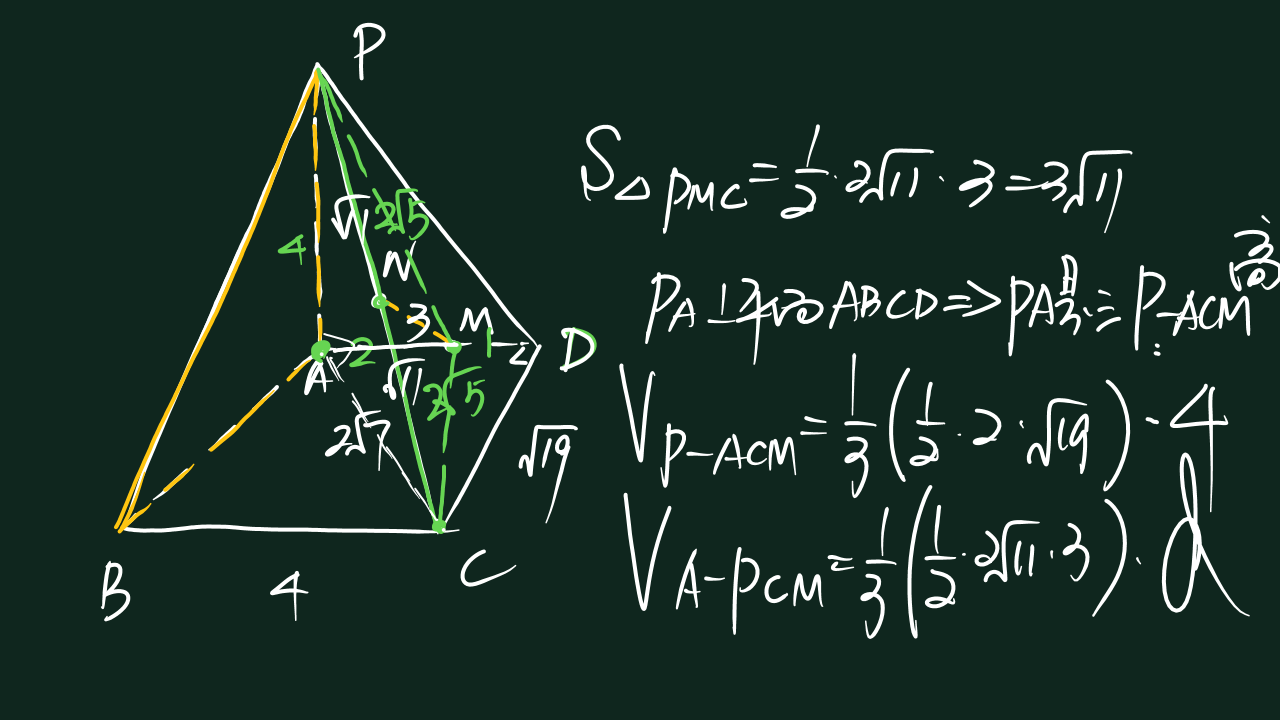 P
4
√11
2√5
N
3
M
1
D
A
2
√11
2√5
2√7
√19
B
4
C
S△PMC=1/2·2√11·3=3√11
PA⊥平面ABCD⇒PA为三棱P-ACM
V P-ACM=1/3(1/2·2·√19)·4
V A-PCM=1/3(1/2·2√11·3)·d